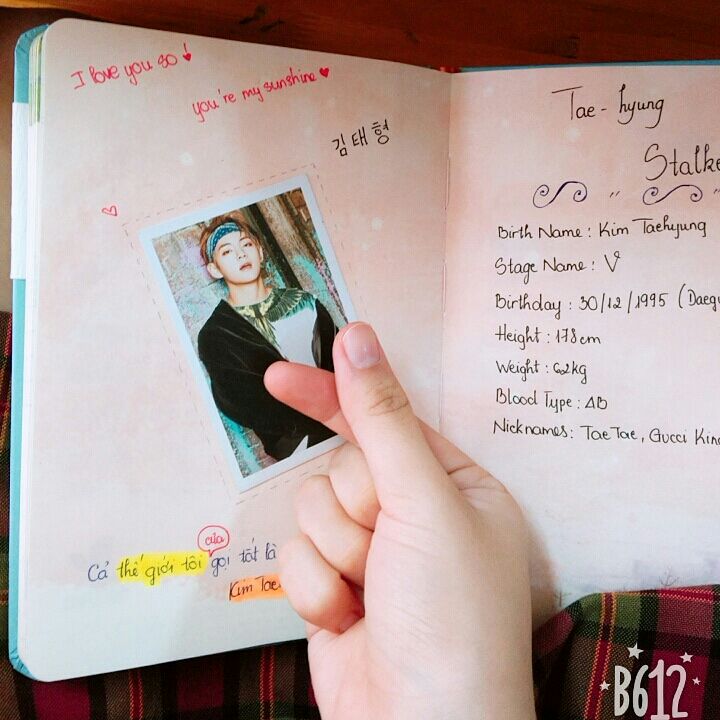 I love you so!
you're my sunshine
김태형
Cả thế giới của tôi gọi tắt là
Kim Tae
Tae - hyung
Stalke
Birth Name : Kim Taehyung
Stage Name : V
Birthday : 30/12/1995 (Daegu
Height : 178cm
Weight : 62kg
Blood Type : AB
Nicknames : TaeTae, Gucci Kin
B612